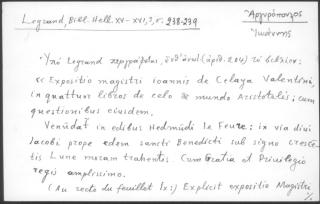 Legrand, Bibl. Hell. XV-XVI, 3, σ. 238-239
Ἀργυρόπουλος
Ἰωάννης
Ὑπὸ Legrand περιγράφεται, (ἀριθ. 204) τὸ βιβλίον:
« Expositio magistri ioannis de Celaya Valentini,
in quattuor libros de celo & mundo Aristotelis; cum
questionibus eiusdem.
Venūdāt in edibus Hedmūdi le Feure: in via divi
Jacobi prope edem sancti Benedicti sub signo cresce-
tis Lune moram trahentis. Cum Gratia et Privilegio
regis amplissimo.
(Au recto du feuillet lx:) Explicit expositio Magistri